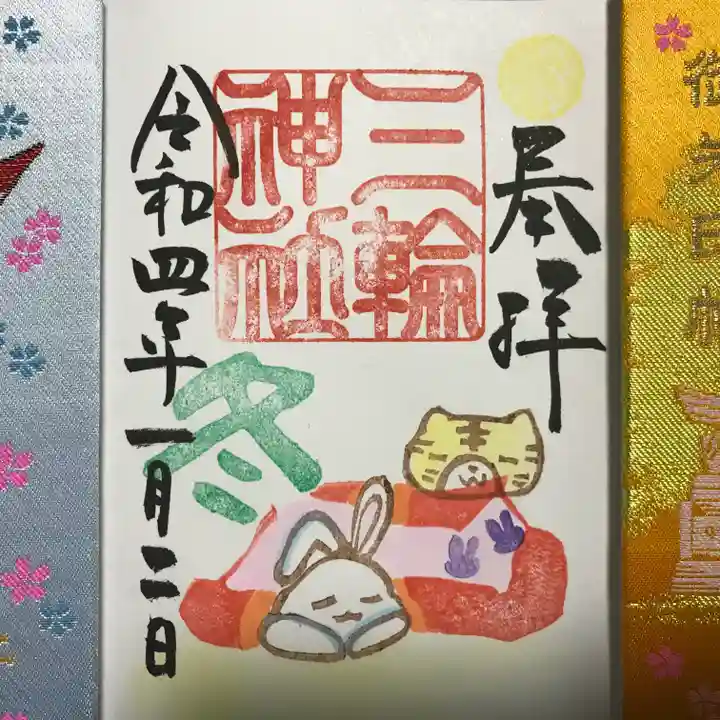 奉拝
三輪
神社
冬
令和四年一月二日